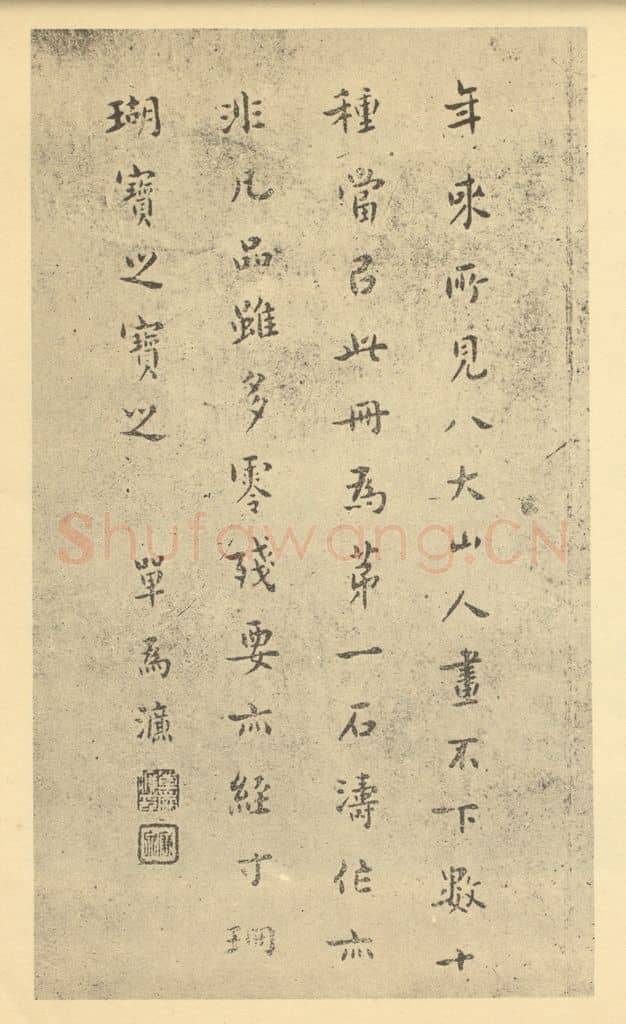 年來所見八大山人畫不下數十
種當㠯此冊為第一石濤作亦
非凡品雖多零殘要亦經寸珊
瑚寶之寶之 單為濂
Shufawang.CN